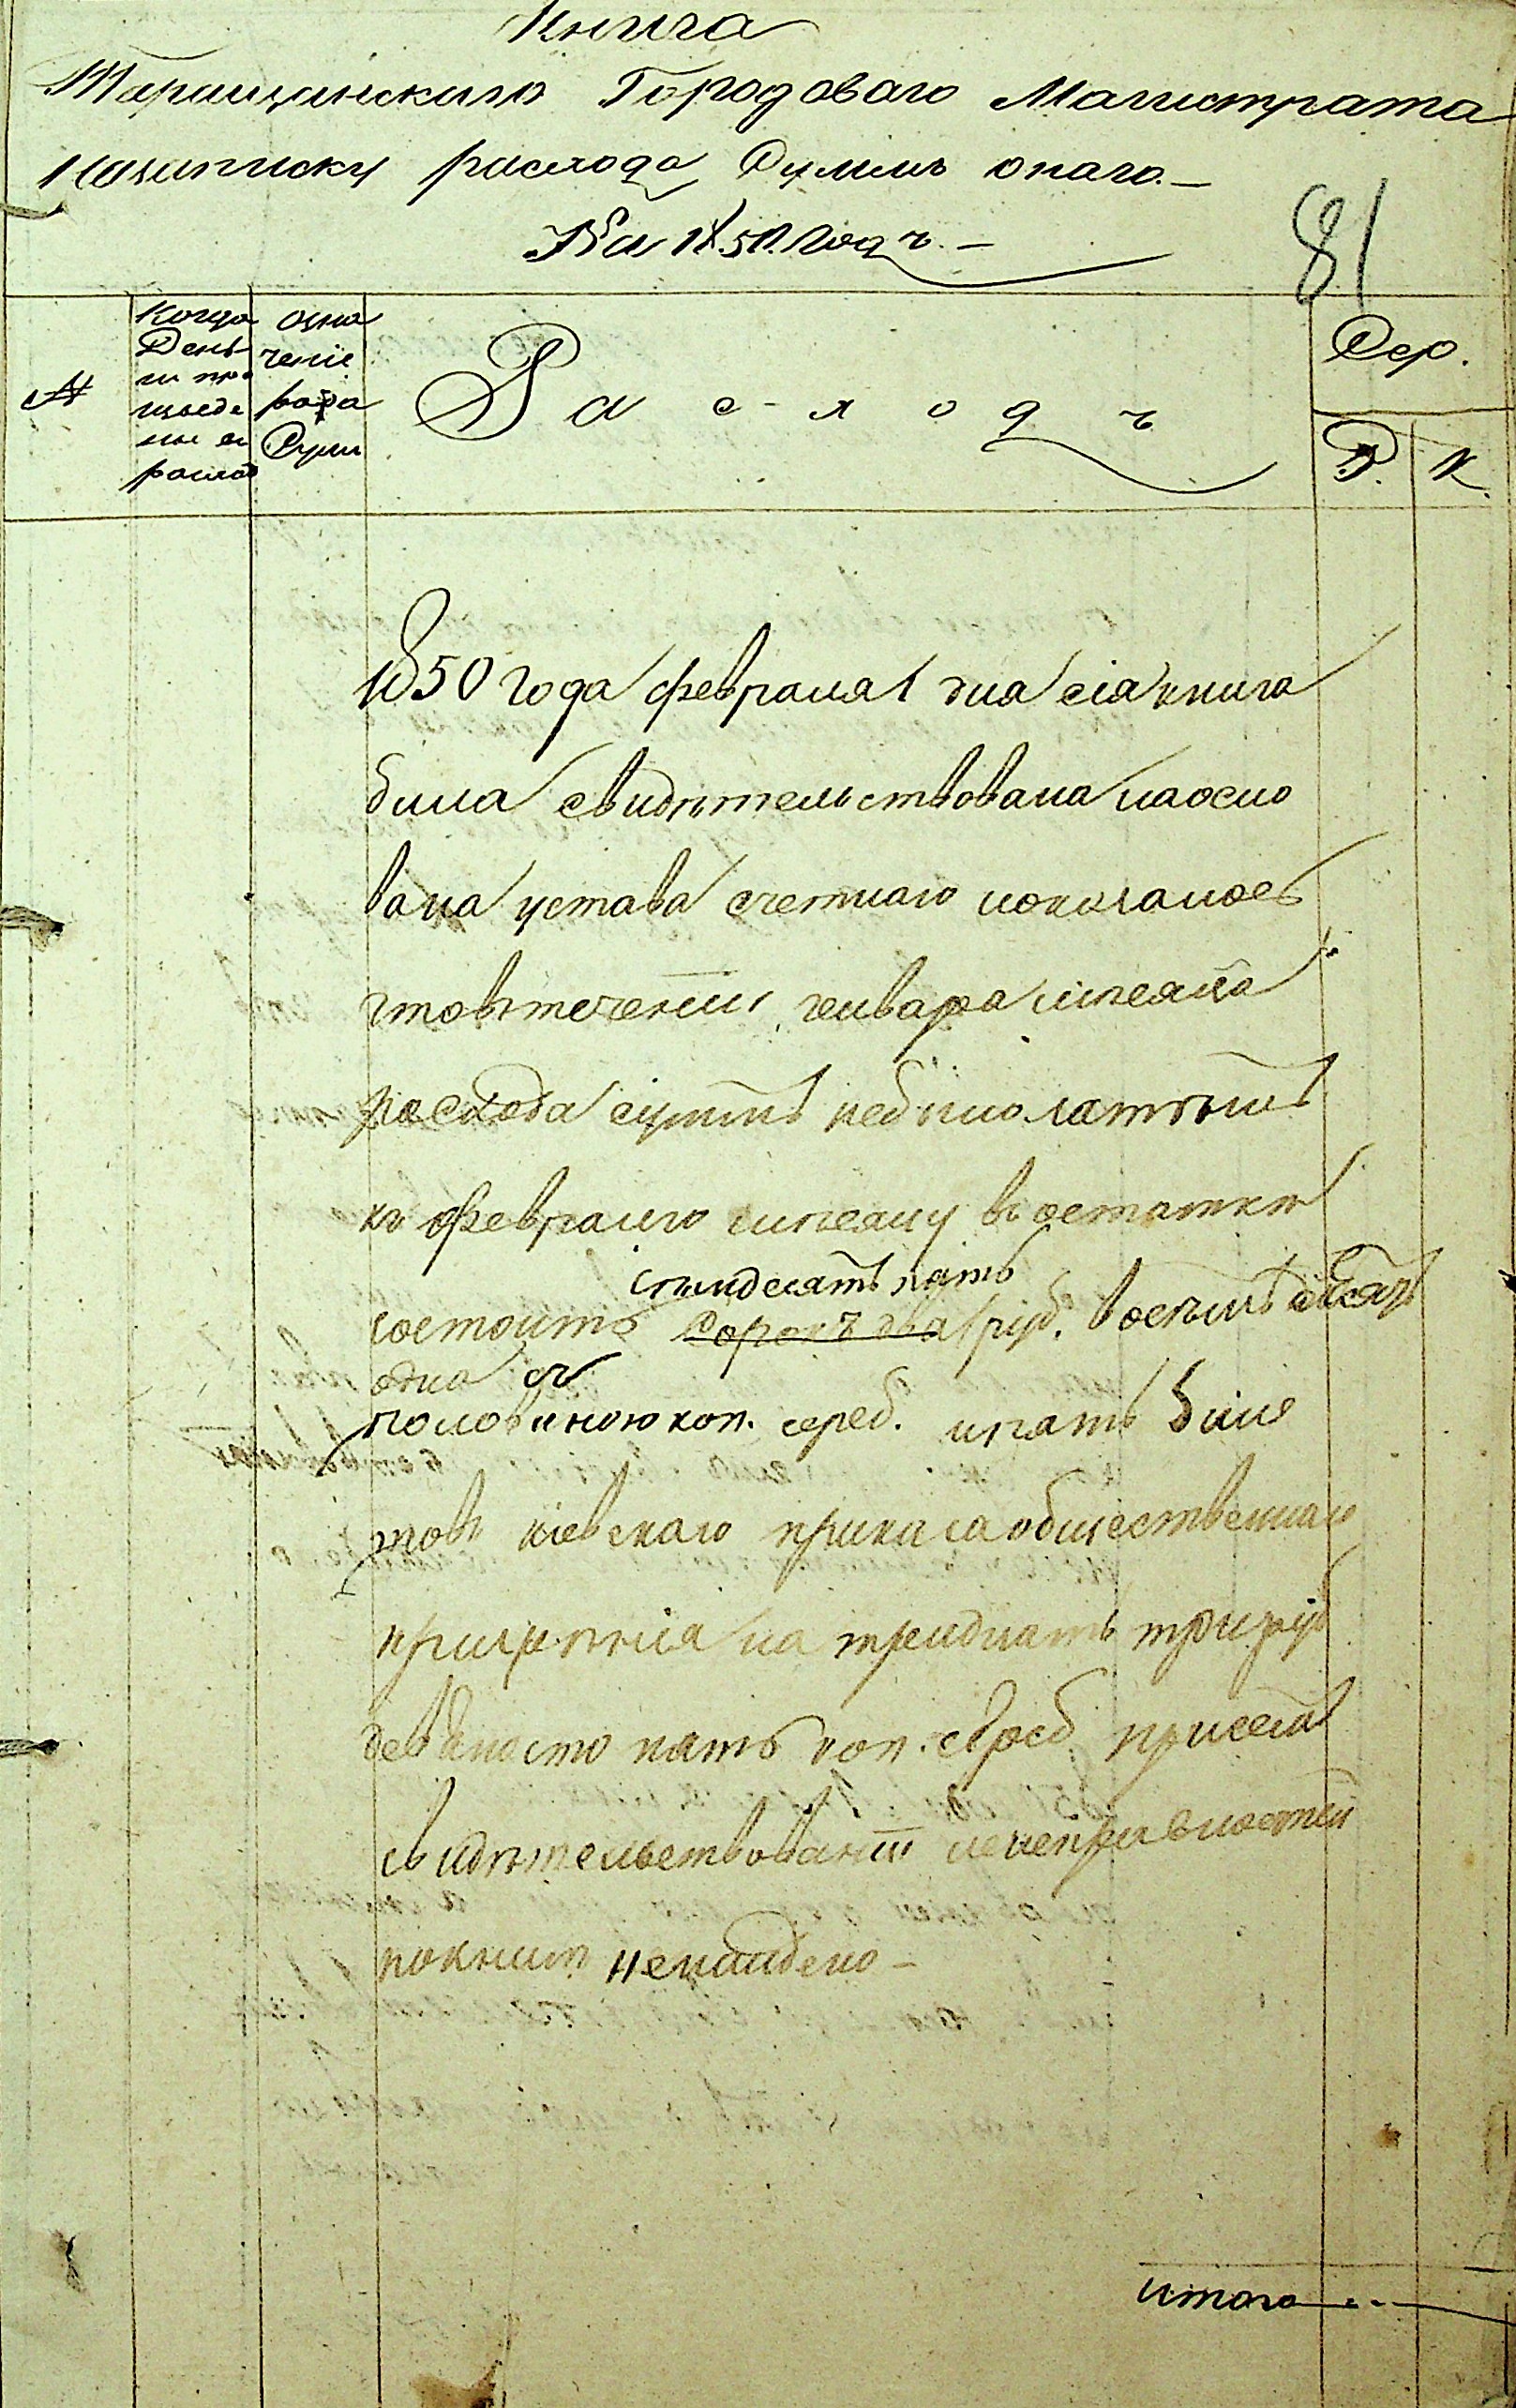 Книга
Таращинскаго Городоваго Магистрата
на записку расхода Суммъ онаго.—
На 1850. Годъ.—
81
№
Когда
День
ги про
изведе
ны въ
расход
Озна
ченіе
рода
Сумм
Расходъ
Сер.
Р. К.
1850 года февраля 1 дня сія книга
била свидѣтельствована наосно
ваніи устава счетнаго
чтовътеченіи генваря мѣсяца
расхода суммъ небыло затѣмъ
къ февралю мѣсяцу въ остаткѣ
семидесятъ пять
состоитъ сорокъ два руб. восемъ десятъ
одна съ
половиною коп. сереб. ипять биле
товъ кіевскаго приказа общественнаго
призрѣнія на тридцать три руб
девяносто пять коп. сереб. присемъ
свидѣтельствованіи неисправностей
покнигѣ ненайдено —
итого